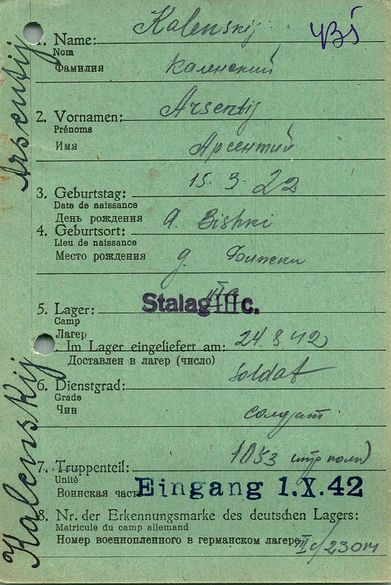 Kalenskij
Arsentij
1. Name: Kalenskij
Nom
Фамилия Каленский
2. Vornamen: Arsentij
Prénoms
Имя Арсентий
3. Geburtstag: 15.3.22
Date de naissance
День рождения
4. Geburtsort: d. Bishki
Lieu de naissance
Место рождения д. Бижки
5. Lager: Stalag III c.
Camp
Лагерь
Im Lager eingeliefert am: 24.8.42
Доставлен в лагерь (число)
6. Dienstgrad: Soldat
Grade
Чин солдат
7. Truppenteil: 1053
Unité
Воинская часть Eingang 1.X.42
8. Nr. der Erkennungsmarke des deutschen Lagers:
Matricule du camp allemand
Номер военнопленного в германском лагере